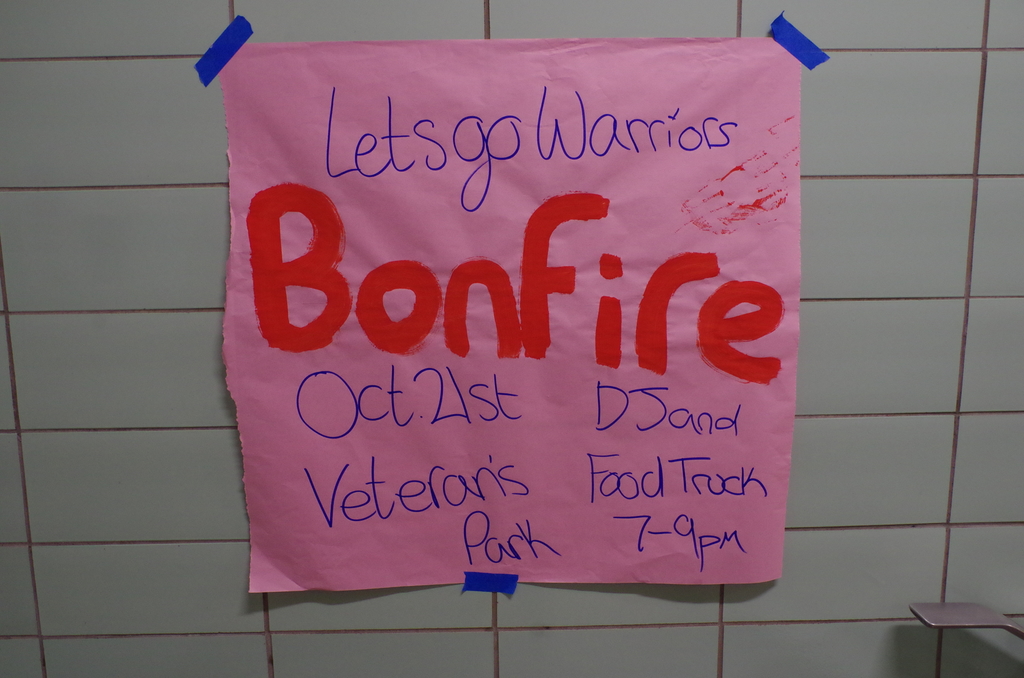 Lets go Warriors
Bonfire
Oct. 21st
Veteran's
Park
DJ and
Food Truck
7-9pm